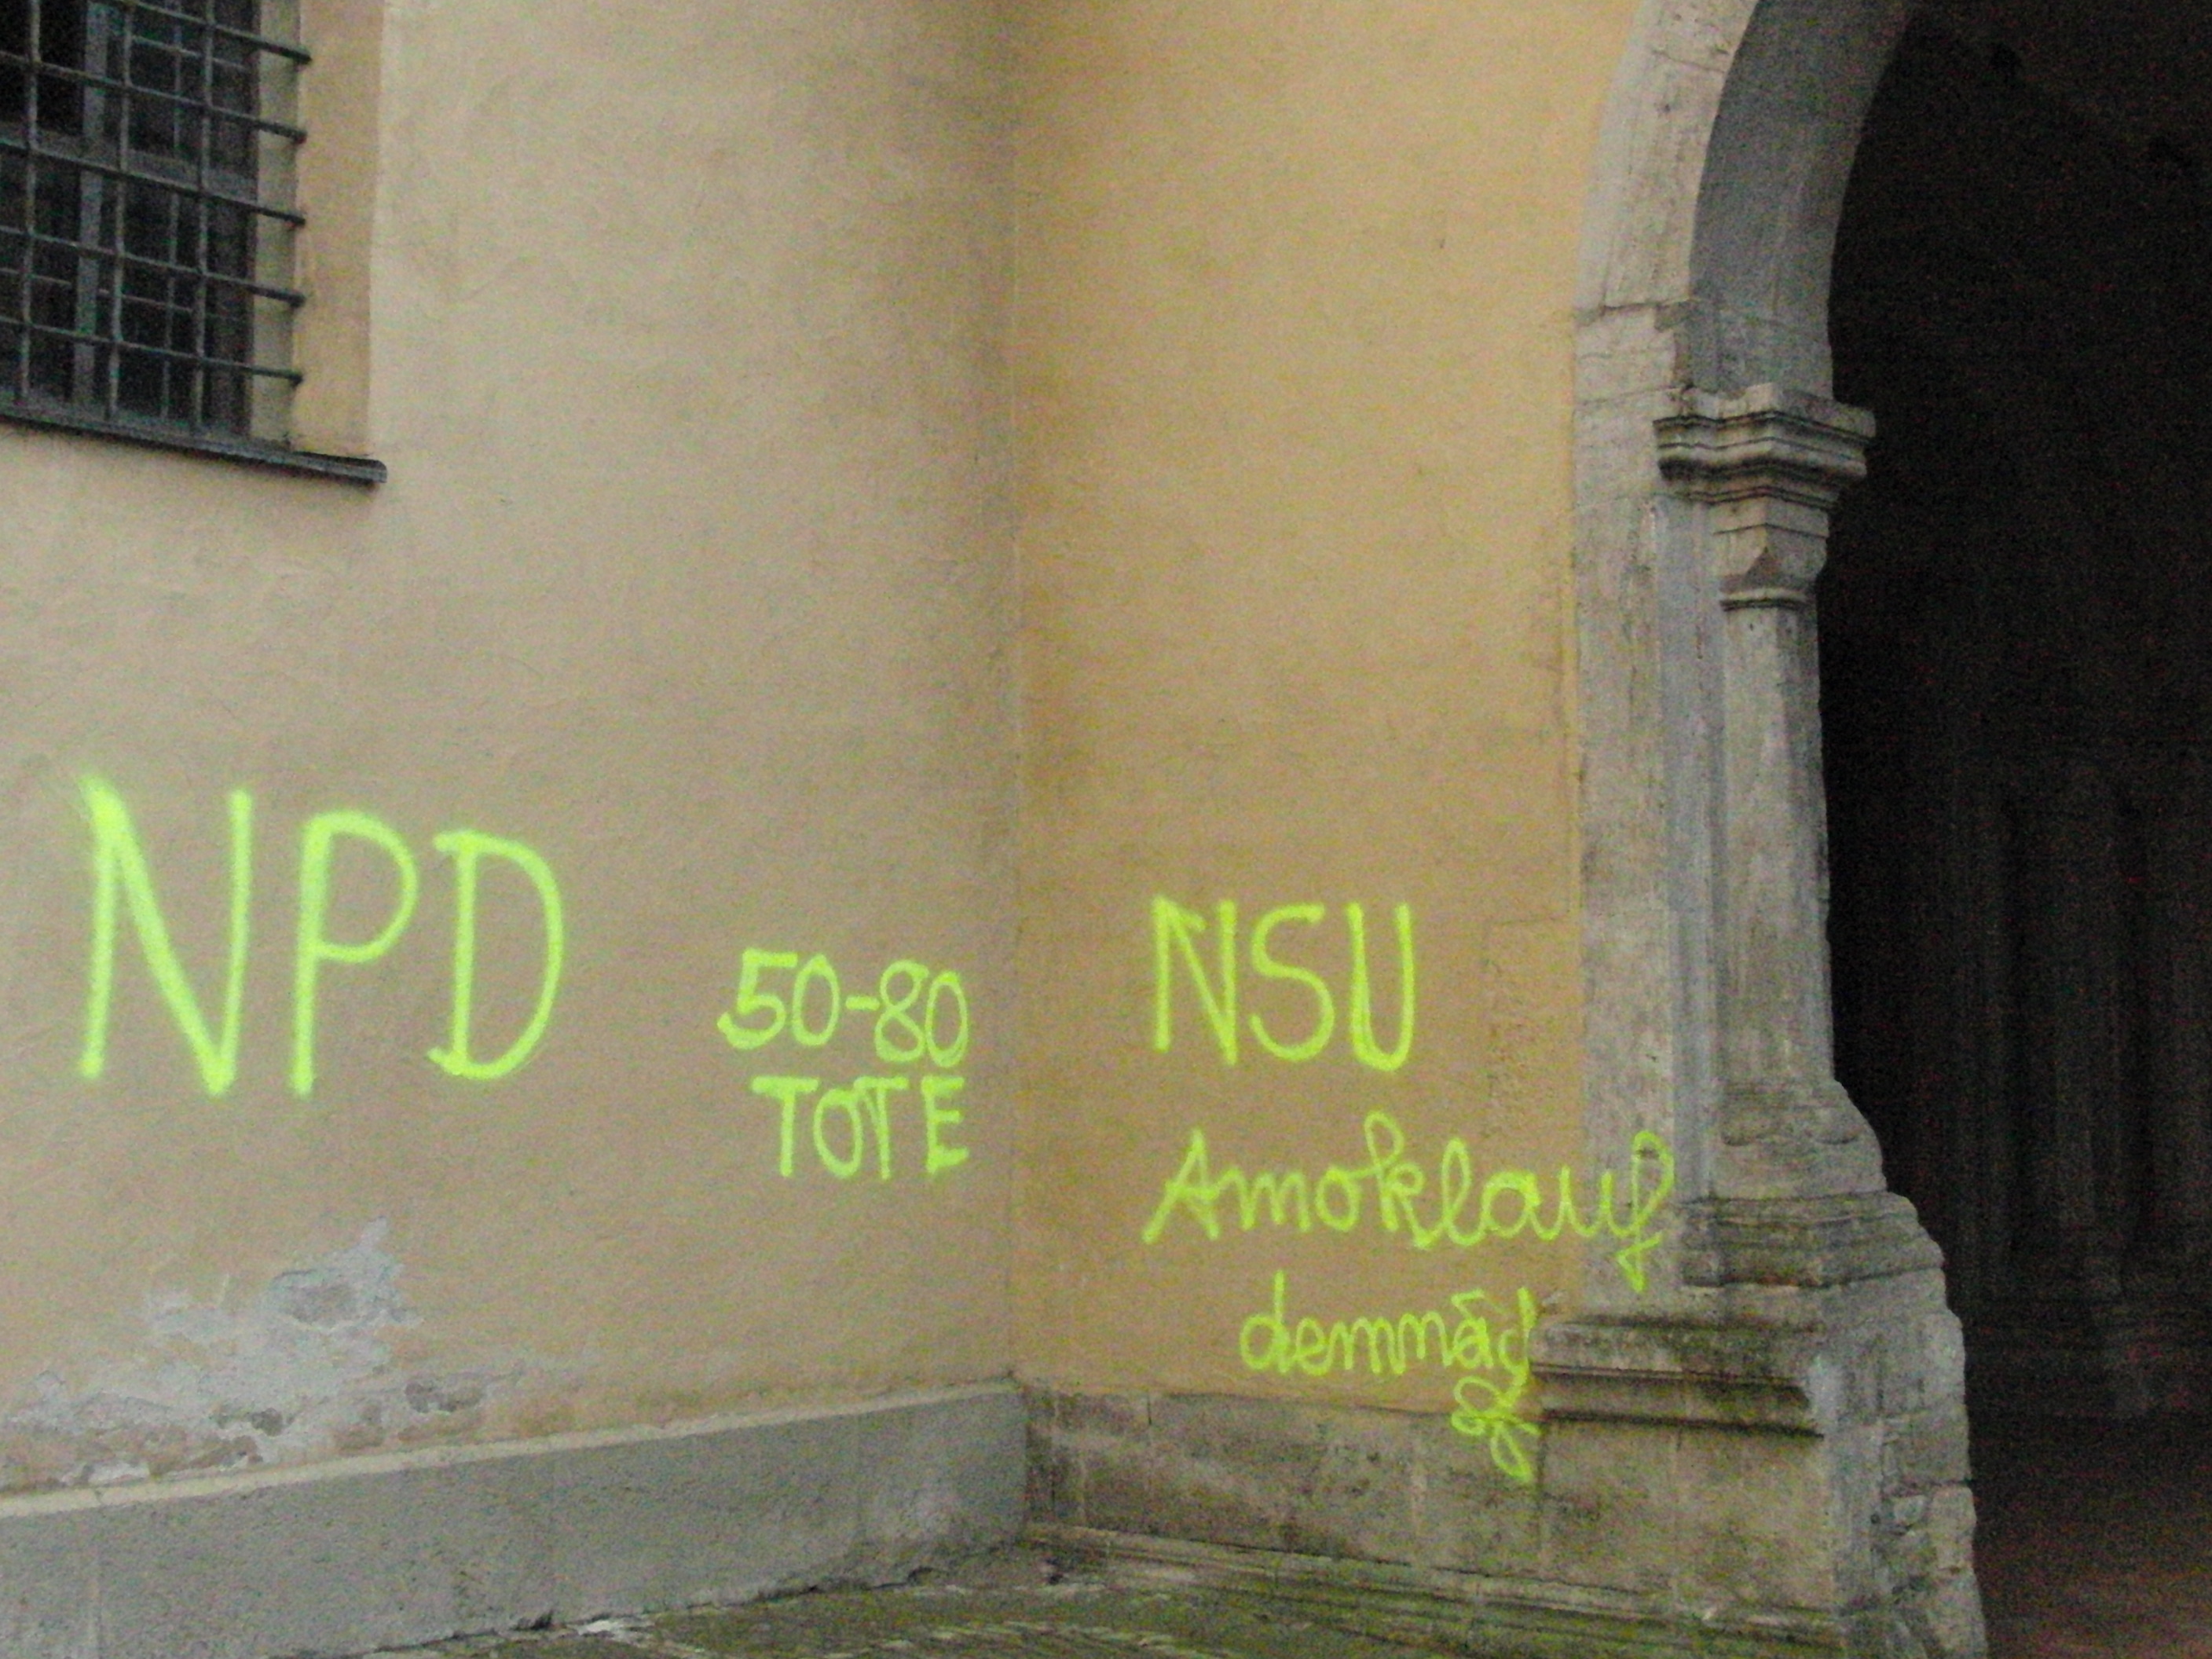 NPD
50-80
TOTE
NSU
Amoklauf
demnäc